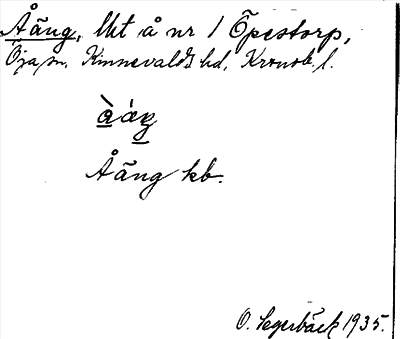 Åäng, lkt å nr 1 Öpestorp,
Öja sn, Kinnevalds hd, Kronob. l.
Åäng kb.
O. Segerbäck 1935.